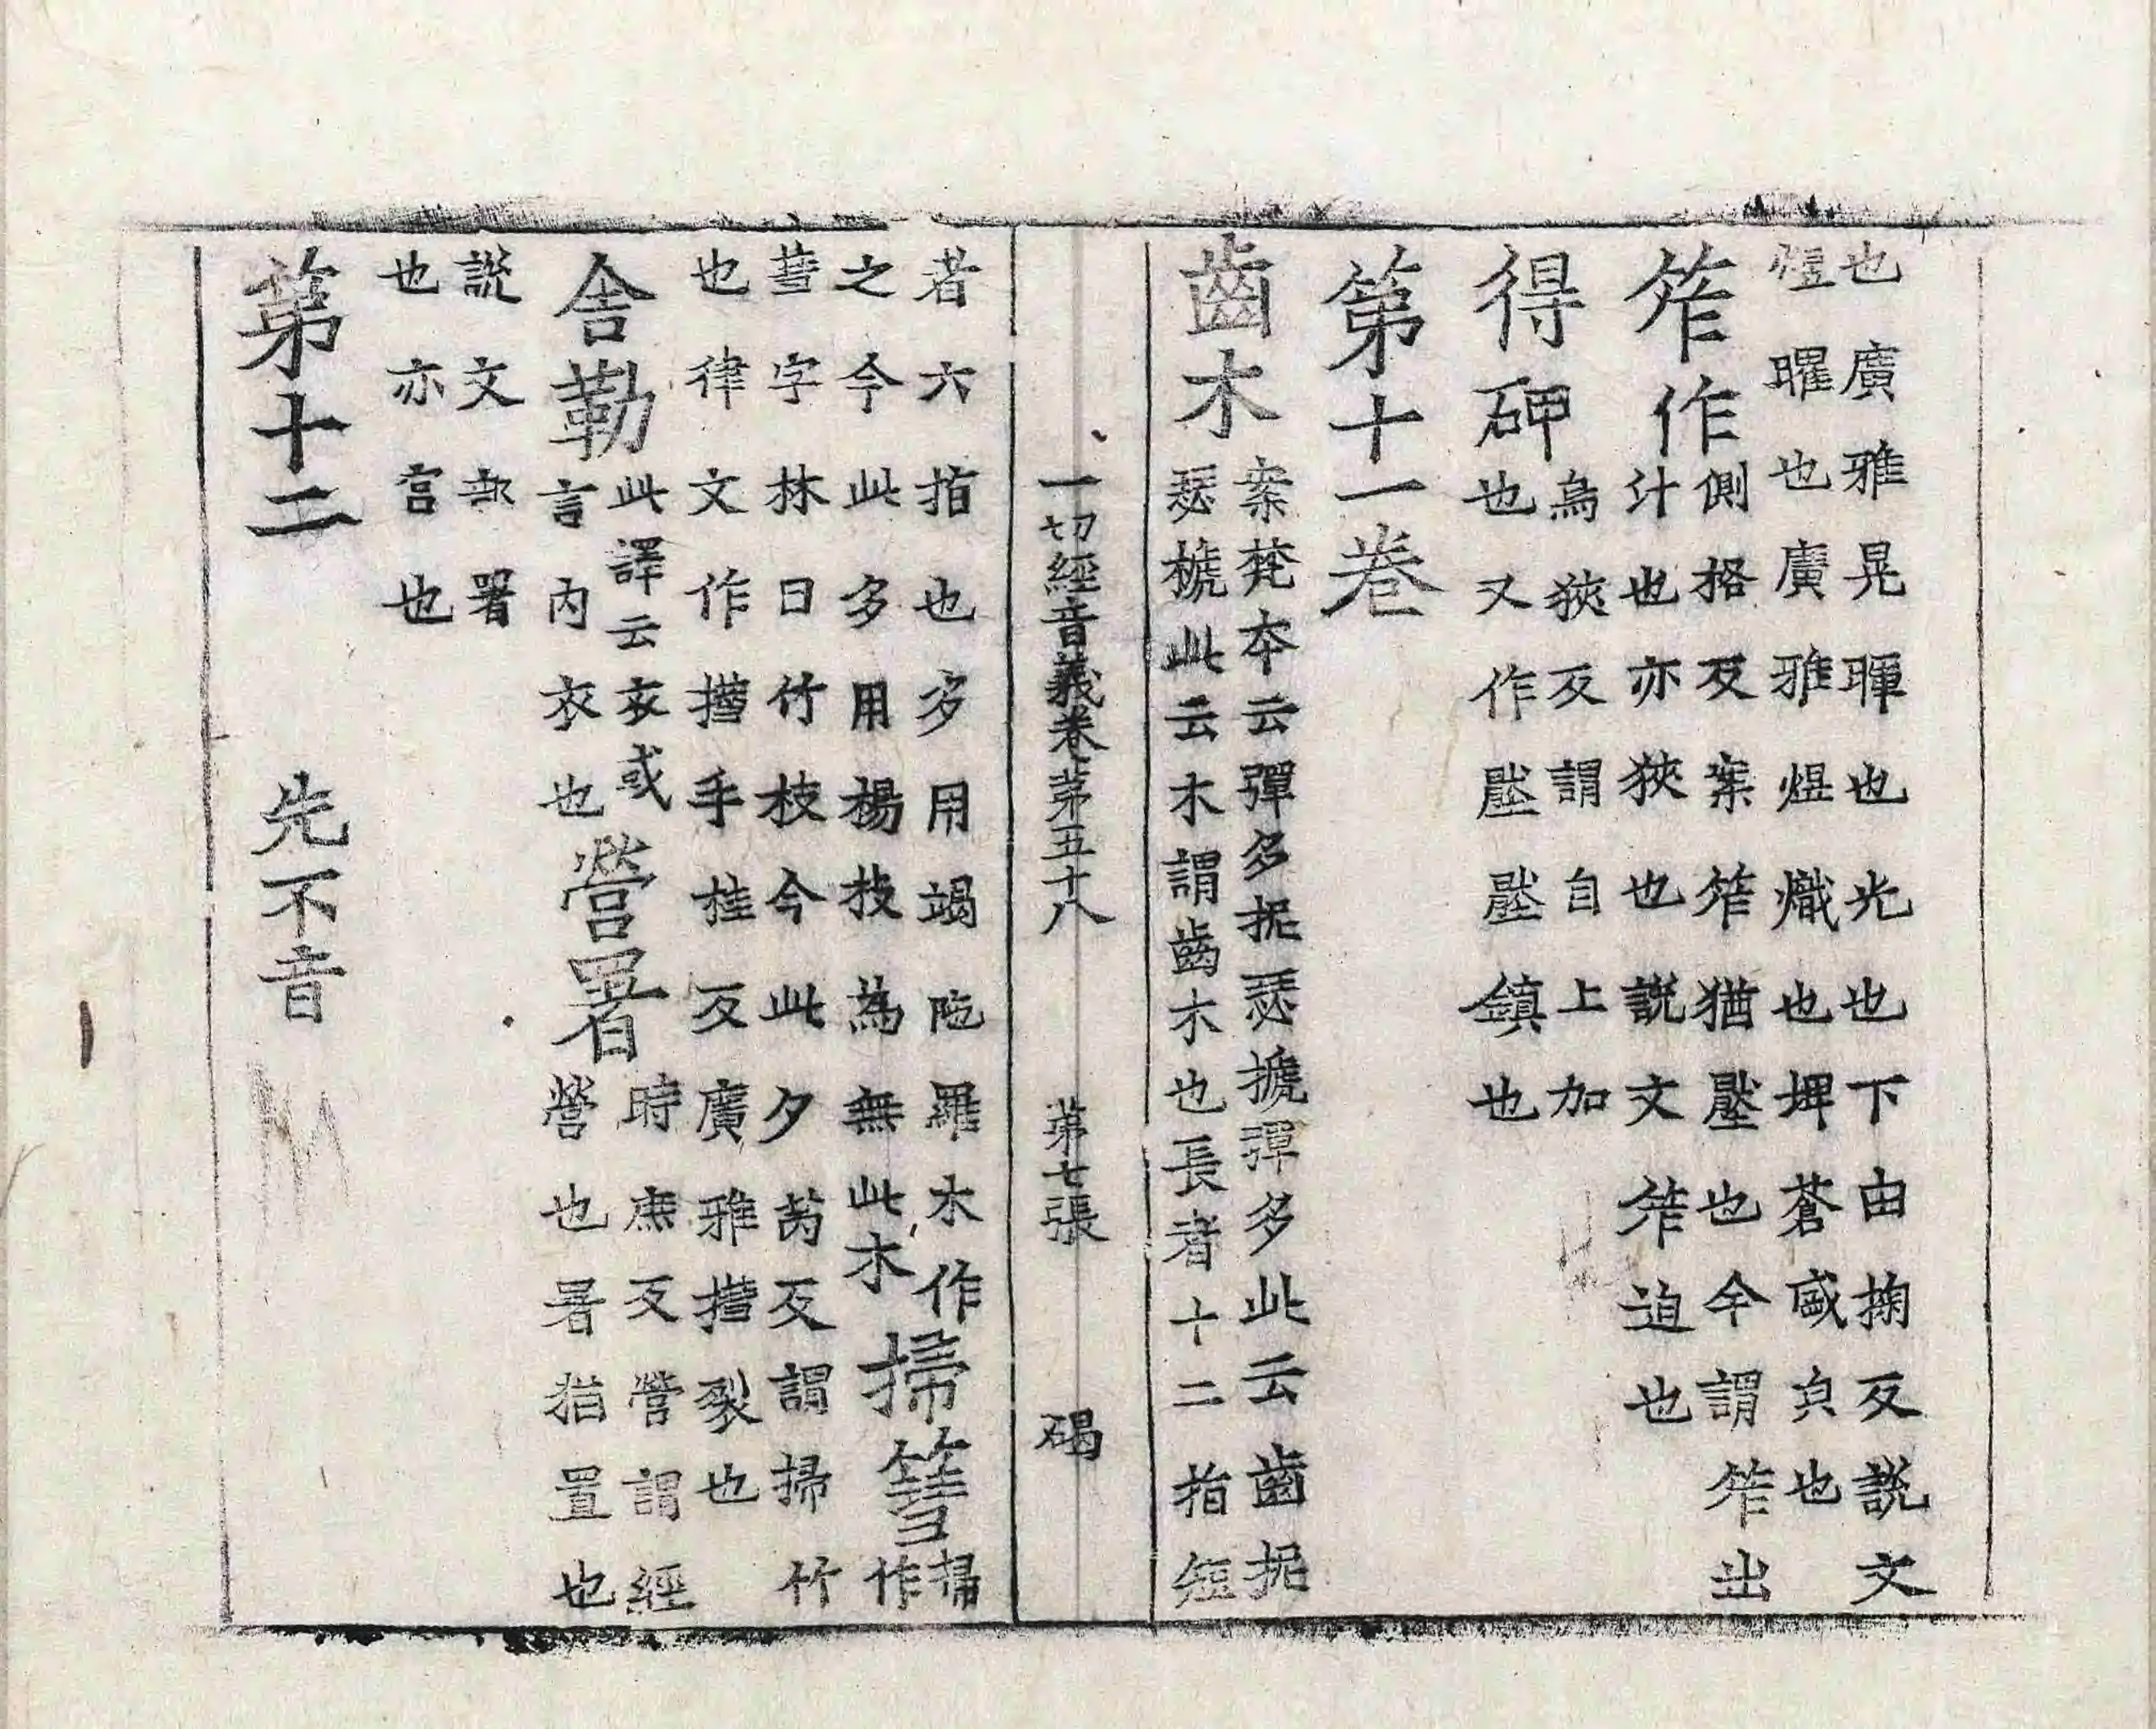 也廣雅晃暉也光也下由掬反説文
煜曜也廣雅煜熾也埤蒼盛皃也
笮作側格反案笮猶壓也今謂笮出
汁也亦狹也説文笮迫也
得砷為狹反謂自上加
也又作壓壓鎮也
第十一卷
齒木案梵本云彈多抳瑟搋彈多此云齒抳
瑟搋此云木謂齒木也長者十二指短
一切經音義卷第五十八 第七張 碣
者六指也多用竭陁羅木作
之今此多用楊枝為無此木掃篲掃
作
䔭字林曰竹枝今此夕芮反謂掃竹
也律文作㩨手桂反廣雅㩨裂也
舍勒此譯云衣或
言内衣也營署時庶反營謂經
營也署猶置也
説文部署
也亦官也
第十二 先不音